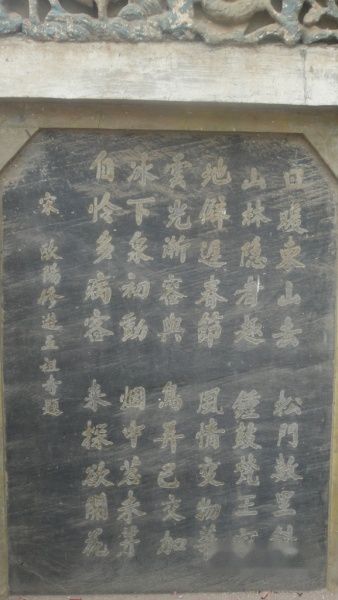 日暖東山去 松門數里斜
山林隱者趣 鐘鼓梵王家
地僻遲春節 風情变物華
雲光漸容與 鳥弄已交加
冰下泉初動 烟中茗未芽
自怜多病客 来探欲開花
宋 欧陽修遊五祖寺題